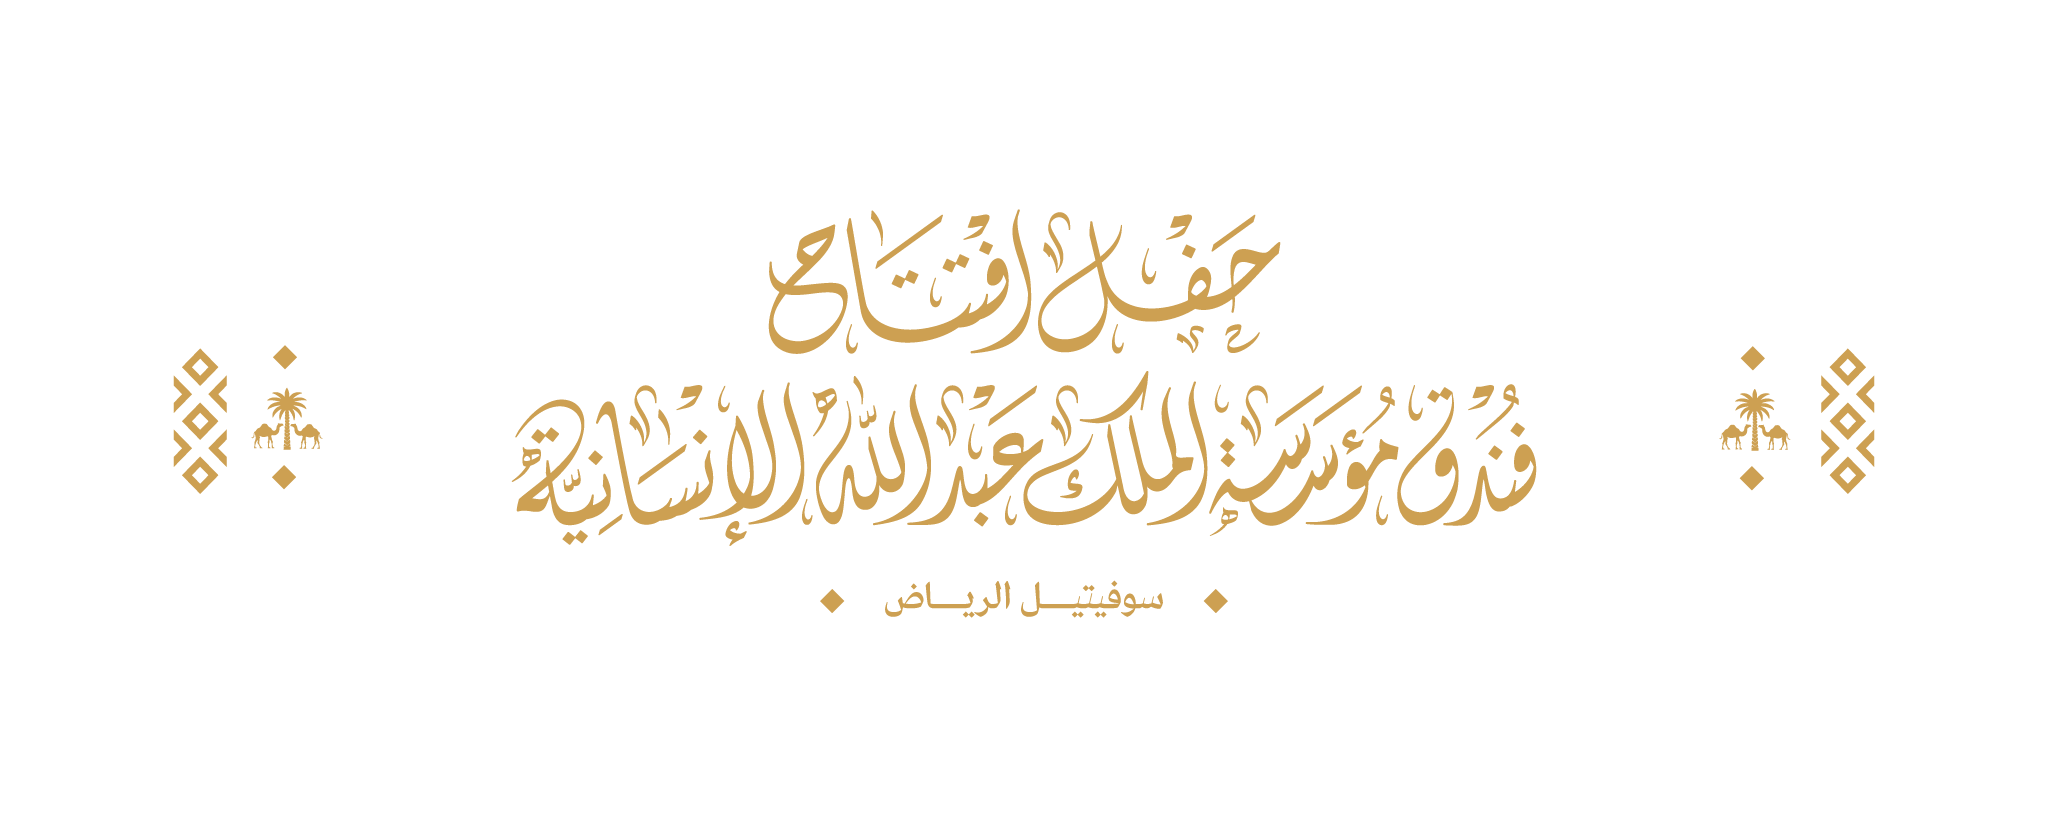 حَفْل افْتتَاح
فُنْدُق مُؤَسَّسَة الملك عَبْد اللَّه الإنْسَانِيَّة
سوفيتيل الرياض